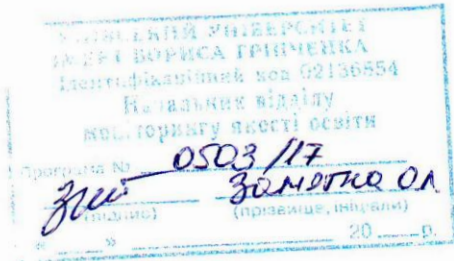 КИЇВСЬКИЙ УНІВЕРСИТЕТ
ІМЕНІ БОРИСА ГРІНЧЕНКА
Ідентифікаційний код 02136554
Начальник відділу
моніторингу якості освіти
Програма № 0503/17
Замотна ОЛ
(підпис) (прізвище, ініціали)
« » 20 р.